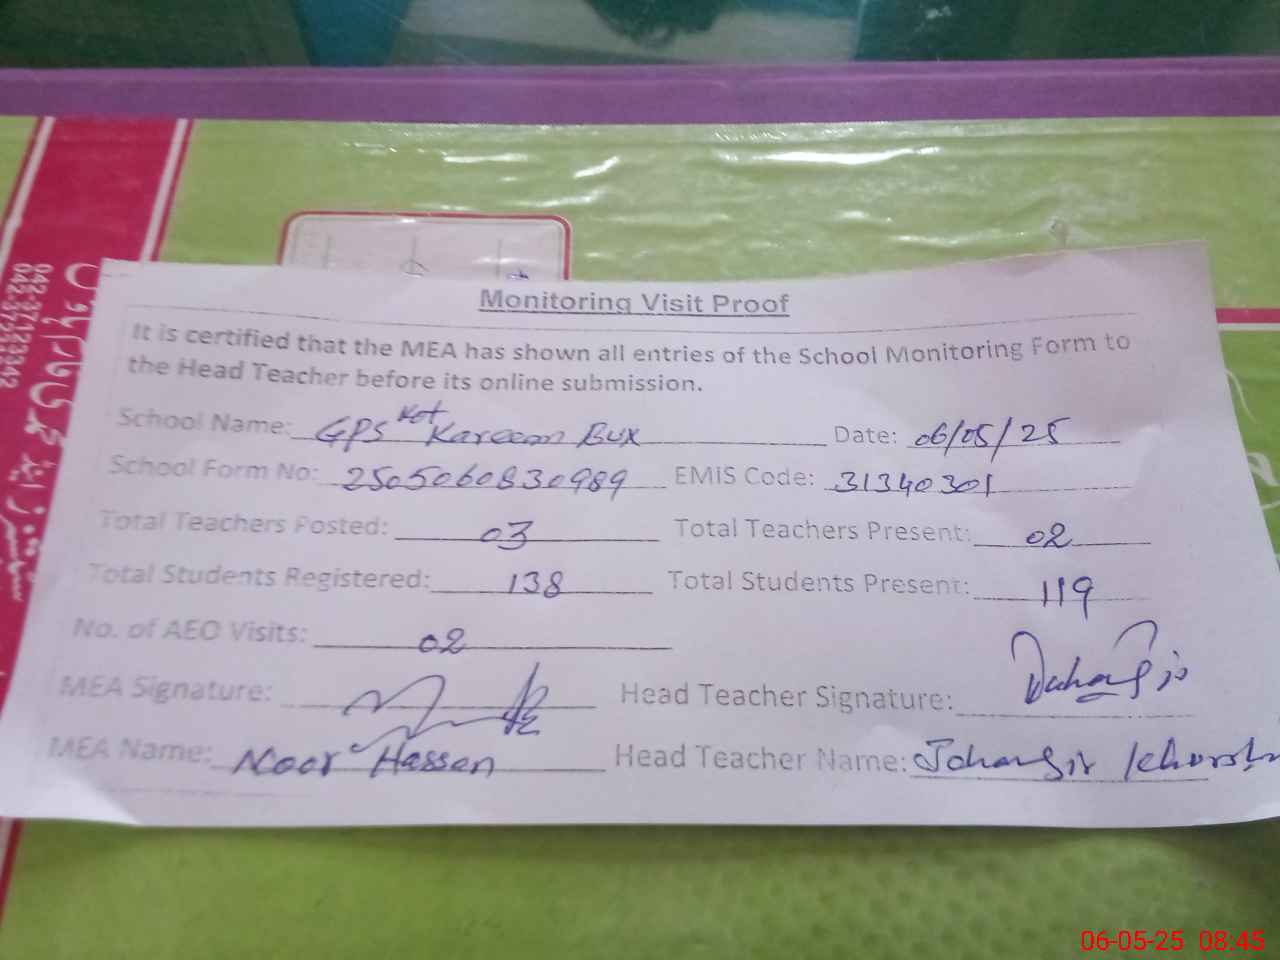 Monitoring Visit Proof
It is certified that the MEA has shown all entries of the School Monitoring Form to
the Head Teacher before its online submission.
School Name: GPS Kot Kareem Bux Date: 06/05/25
School Form No: 2505060830989 EMIS Code: 31340301
Total Teachers Posted: 03 Total Teachers Present: 02
Total Students Registered: 138 Total Students Present: 119
No. of AEO Visits: 02
MEA Signature: Head Teacher Signature:
MEA Name: Noor Hassan Head Teacher Name: Jehangir
06-05-25 08:45